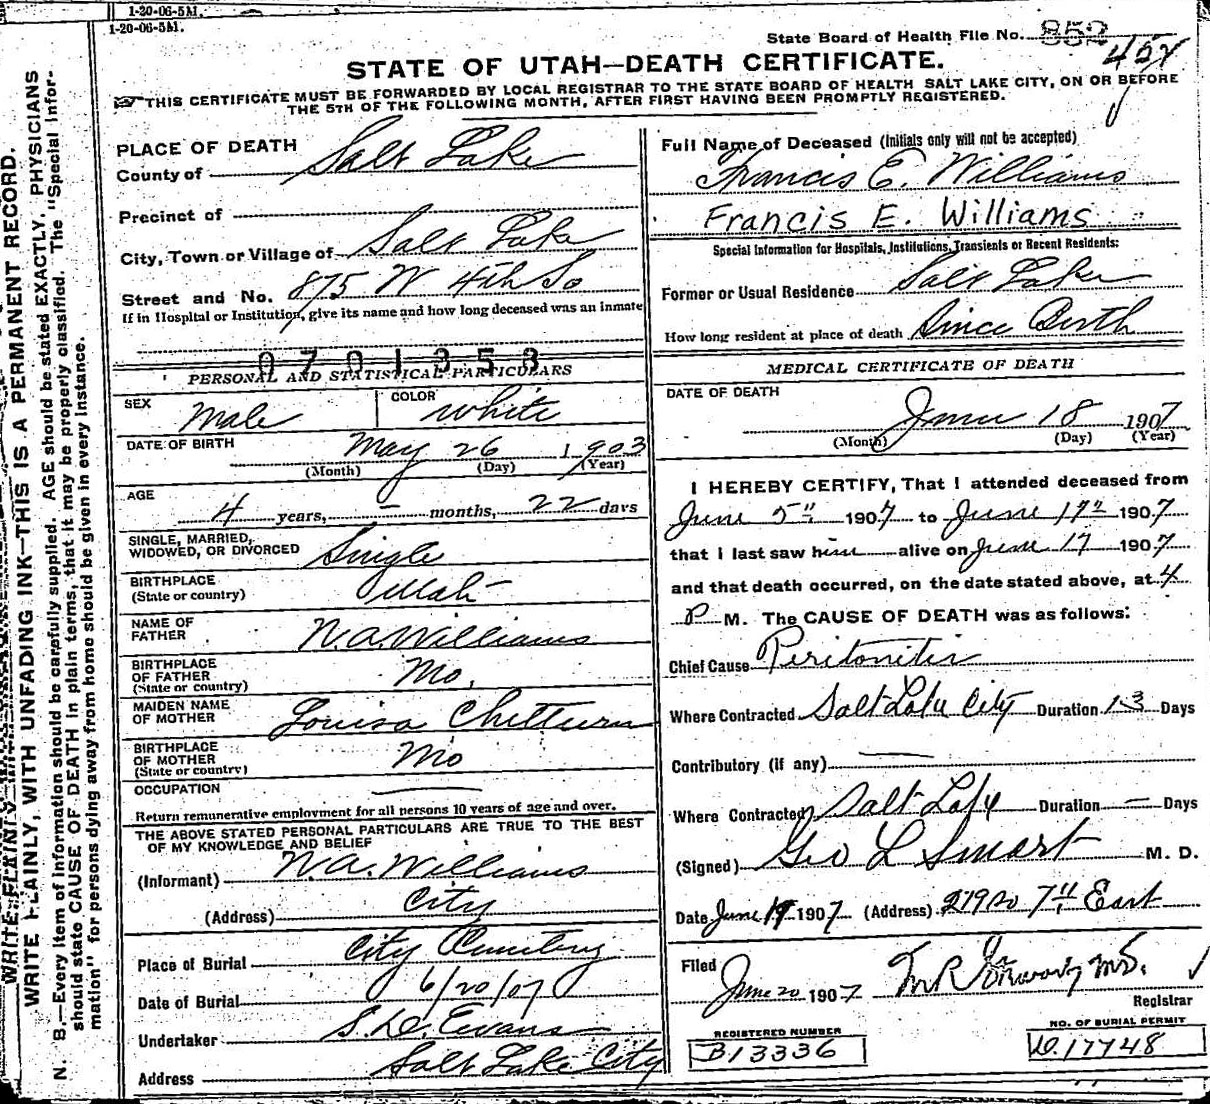 1-20-06-5M.
1-20-06-5M.
State Board of Health File No. 852
452
STATE OF UTAH—DEATH CERTIFICATE.
THIS CERTIFICATE MUST BE FORWARDED BY LOCAL REGISTRAR TO THE STATE BOARD OF HEALTH SALT LAKE CITY, ON OR BEFORE
THE 5TH OF THE FOLLOWING MONTH, AFTER FIRST HAVING BEEN PROMPTLY REGISTERED.
WRITE PLAINLY, WITH UNFADING INK—THIS IS A PERMANENT RECORD.
N. B.—Every item of information should be carefully supplied. AGE should be stated EXACTLY. PHYSICIANS
should state CAUSE OF DEATH in plain terms, that it may be properly classified. The "Special Infor-
mation" for persons dying away from home should be given in every instance.
PLACE OF DEATH
County of Salt Lake
Precinct of
City, Town or Village of Salt Lake
Street and No. 875 W 4th So
If in Hospital or Institution, give its name and how long deceased was an inmate
0701353
PERSONAL AND STATISTICAL PARTICULARS
SEX Male COLOR White
DATE OF BIRTH May 26 1903
(Month) (Day) (Year)
AGE
4 years, - months, 22 days
SINGLE, MARRIED,
WIDOWED, OR DIVORCED Single
BIRTHPLACE
(State or country) Utah
NAME OF
FATHER W.A. Williams
BIRTHPLACE
OF FATHER
(State or country) Mo.
MAIDEN NAME
OF MOTHER Louisa
BIRTHPLACE
OF MOTHER
(State or country) Mo
OCCUPATION
Return remunerative employment for all persons 10 years of age and over.
THE ABOVE STATED PERSONAL PARTICULARS ARE TRUE TO THE BEST
OF MY KNOWLEDGE AND BELIEF
(Informant) W.A. Williams
(Address) City
Place of Burial City Cemetery
Date of Burial 6/20/07
Undertaker S.D. Evans
Address Salt Lake City
Full Name of Deceased (Initials only will not be accepted)
Francis E. Williams
Francis E. Williams
Special Information for Hospitals, Institutions, Transients or Recent Residents:
Former or Usual Residence Salt Lake
How long resident at place of death Since Birth
MEDICAL CERTIFICATE OF DEATH
DATE OF DEATH
June 18 1907
(Month) (Day) (Year)
I HEREBY CERTIFY, That I attended deceased from
June 5" 1907 to June 17" 1907
that I last saw him alive on June 17 1907
and that death occurred, on the date stated above, at 4
P M. The CAUSE OF DEATH was as follows:
Chief Cause Peritonitis
Where Contracted Salt Lake City Duration 13 Days
Contributory (if any)
Where Contracted Salt Lake Duration — Days
(Signed) Geo L Smart M. D.
Date June 19 1907 (Address) 279 So 7" East
Filed
June 20 1907 M.D.
Registrar
REGISTERED NUMBER
B13336
NO. OF BURIAL PERMIT
D.17748